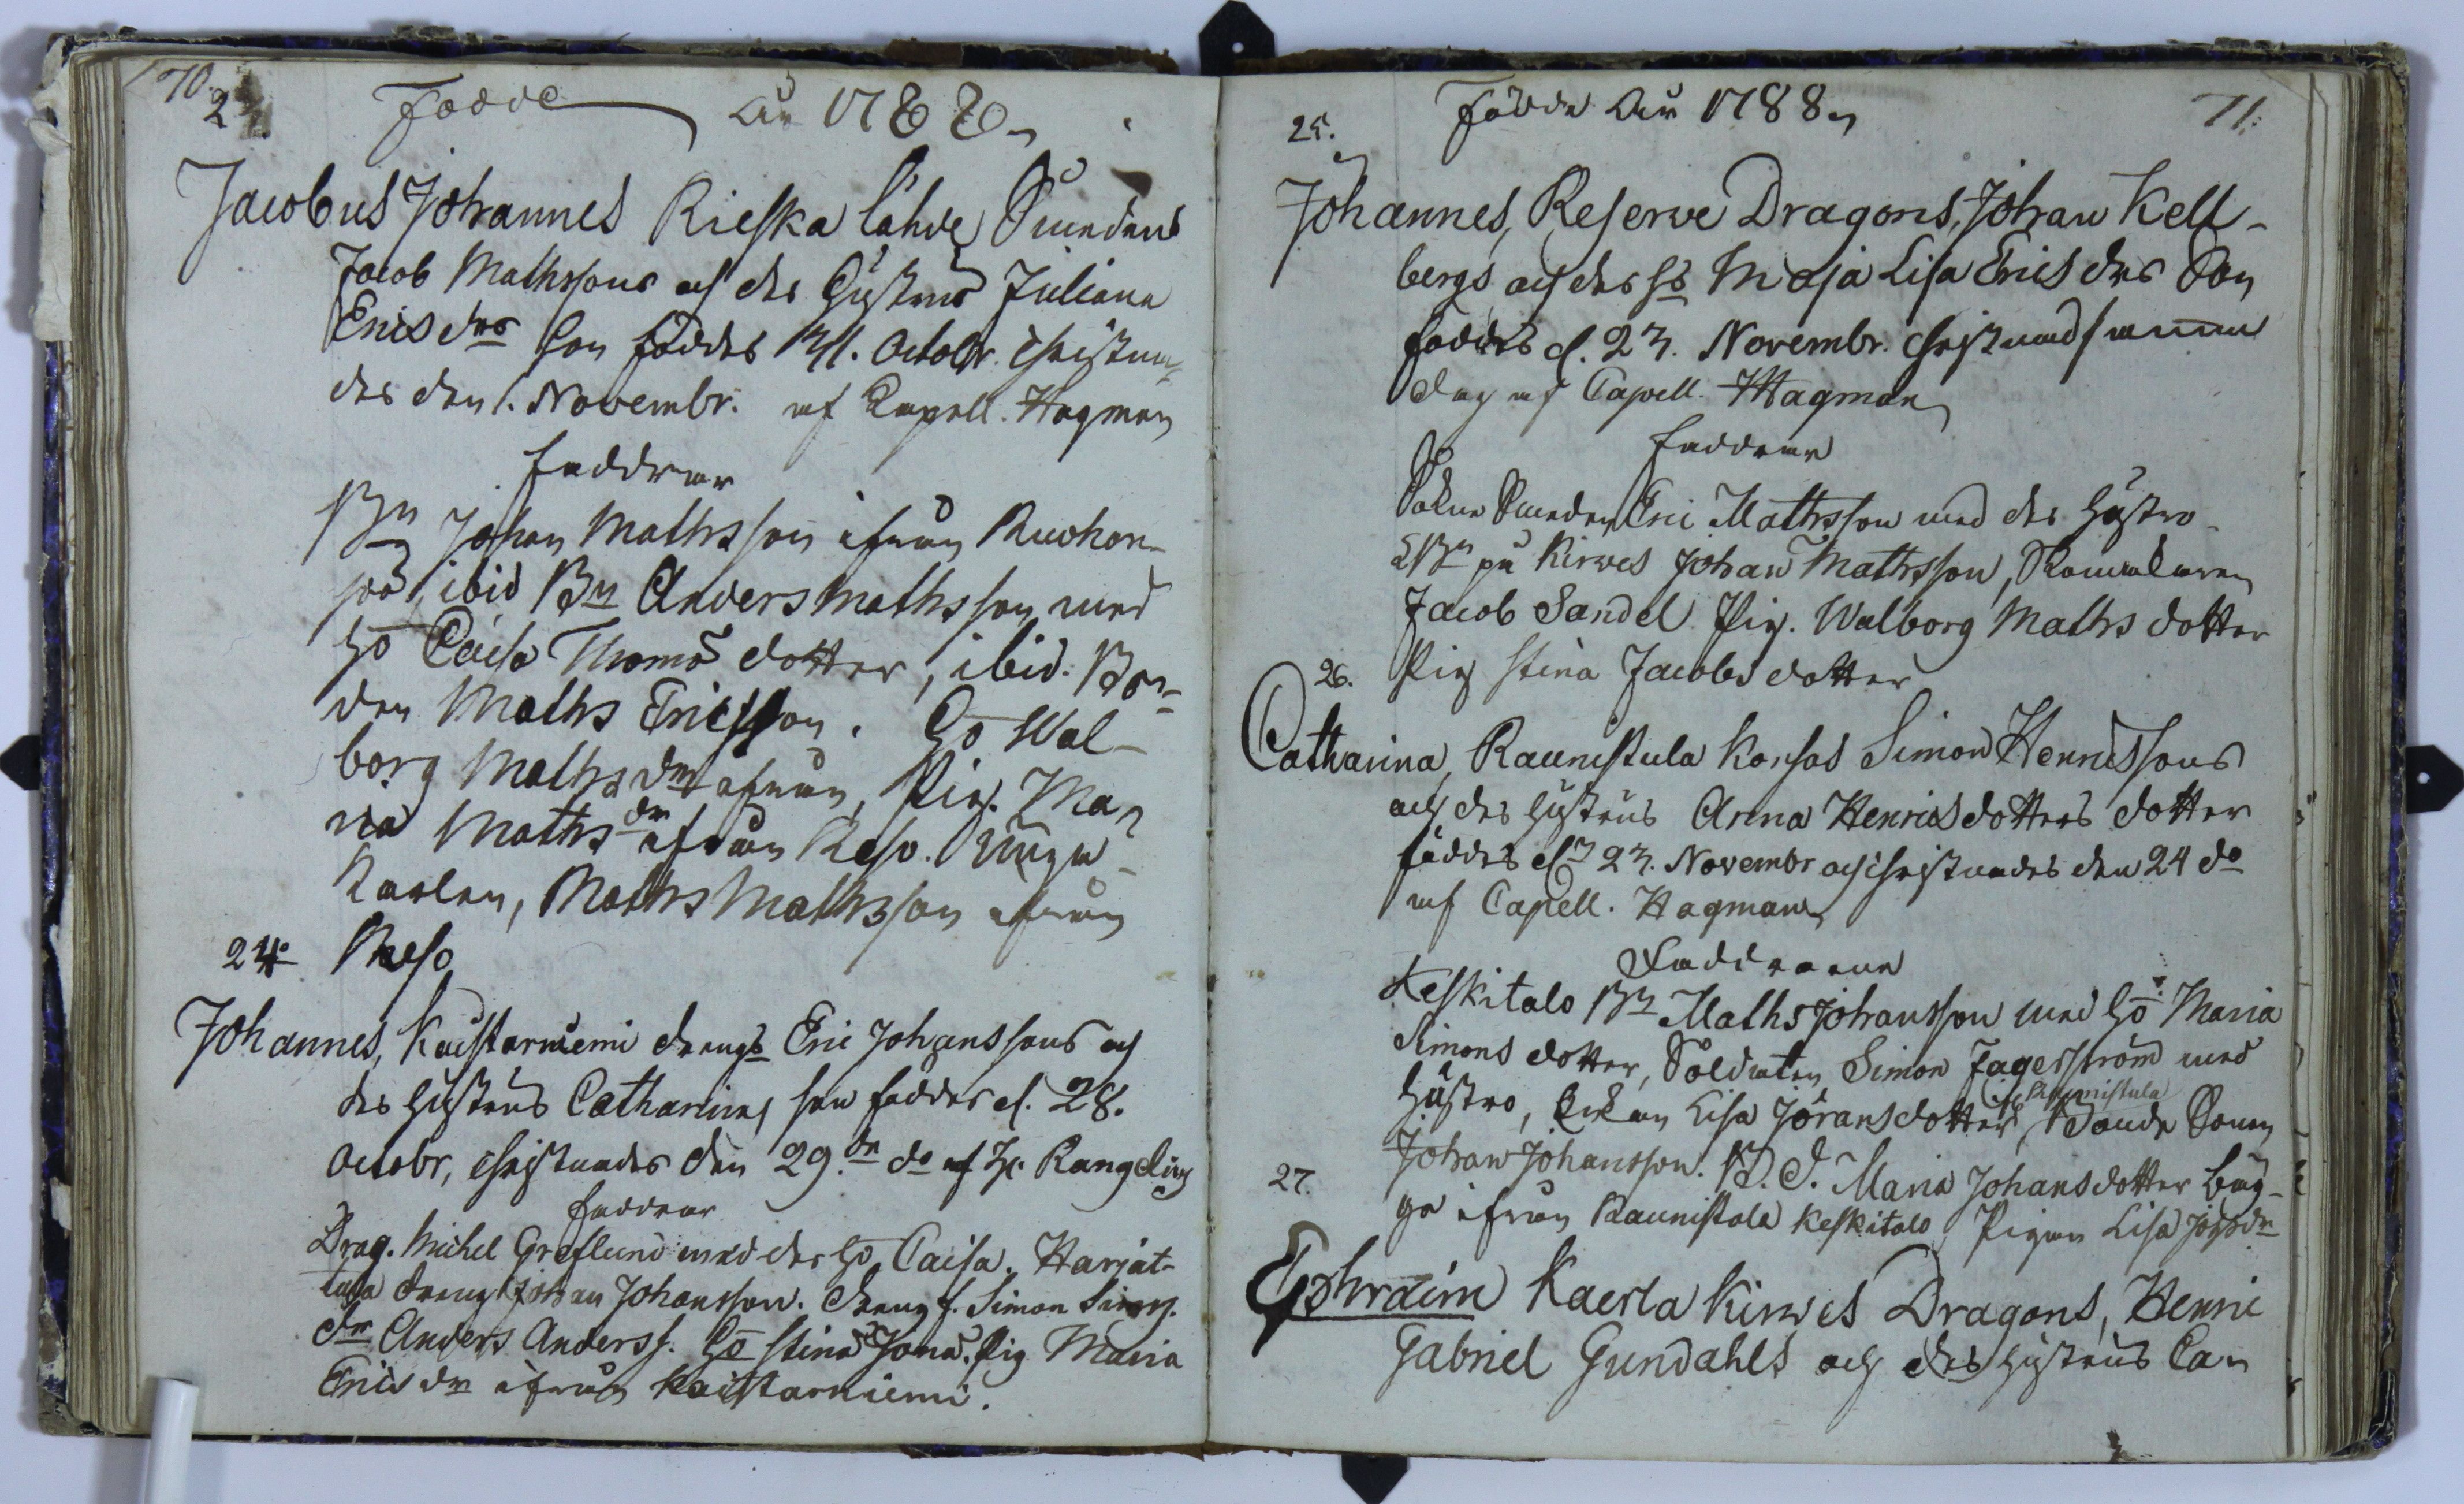 70.
23.
Födde År 1788.
Jacobus Johannes Rieska lähde Smedens
Jacob Mathssons och des Hustrus Juliana
Erics drs Son föddes 31. Octobr. Christna-
des den 1. Novembr. af Capell. Hagman
faddrar
Bn Johan Mathsson ifrån Ruohon-
pää, ibid Bn Anders Mathsson med
Ho Caisa Thomæ dotter, ibid. Bon-
den Maths Ericsson. Ho Wal-
borg Maths dr ifrån, Pig. Ma-
ria Maths dr ifrån Reso. Unga
Karlen, Maths Mathsson ifrån
Reso
24.
Johannes, Kaistarniemi drengs Eric Johanssons och
des Hustrus Catharinæ son föddes d. 28.
Octobr, Christnades den 29. de do af H. Rangelin
faddrar
Drag. Michel Greflund med des Ho Caisa. Harjat-
tula dreng Johan Johansson. Dreng f. Simon Simons
dr Anders Anderss. Ho Stina Jona. Pig Maria
Erics dr ifrån Kaistarniemi.
71.
Födde År 1788.
25.
Johannes, Reserve Dragons, Johan Kell-
bergs och des Hs Maja Lisa Erics drs Son
föddes d. 23. Novembr. Christnad samma
dag af Capell. Hagman
faddrar
Sokne Smeden Eric Mathsson med des Hustro
Bn på Kirves Johan Mathsson,
Jacob Sandel. Pig. Walborg Maths dotter
Pig Stina Jacobs dotter
26.
Catharina, Raunistula Karhos Simon Henricssons
och des Hustrus Anna Henrics dotters dotter
föddes d. 23. Novembr och Christnades den 24 do
af Capell. Hagman
Faddrarne
Keskitalo Bn Maths Johansson med Ho Maria
Simons dotter, Soldaten Simon Fagerström med
Hustro, Enkan Lisa Jörans dotter, Raunistula Bonde Sonen
Johan Johansson. B. D. Maria Johans dotter bäg-
ge ifrån Raunistula Keskitalo, Pigan Lisa Josps dr
27.
Ephraim Kaerla Kirves Dragons, Henric
Gabriel Gundahls och des Hustrus Ca-